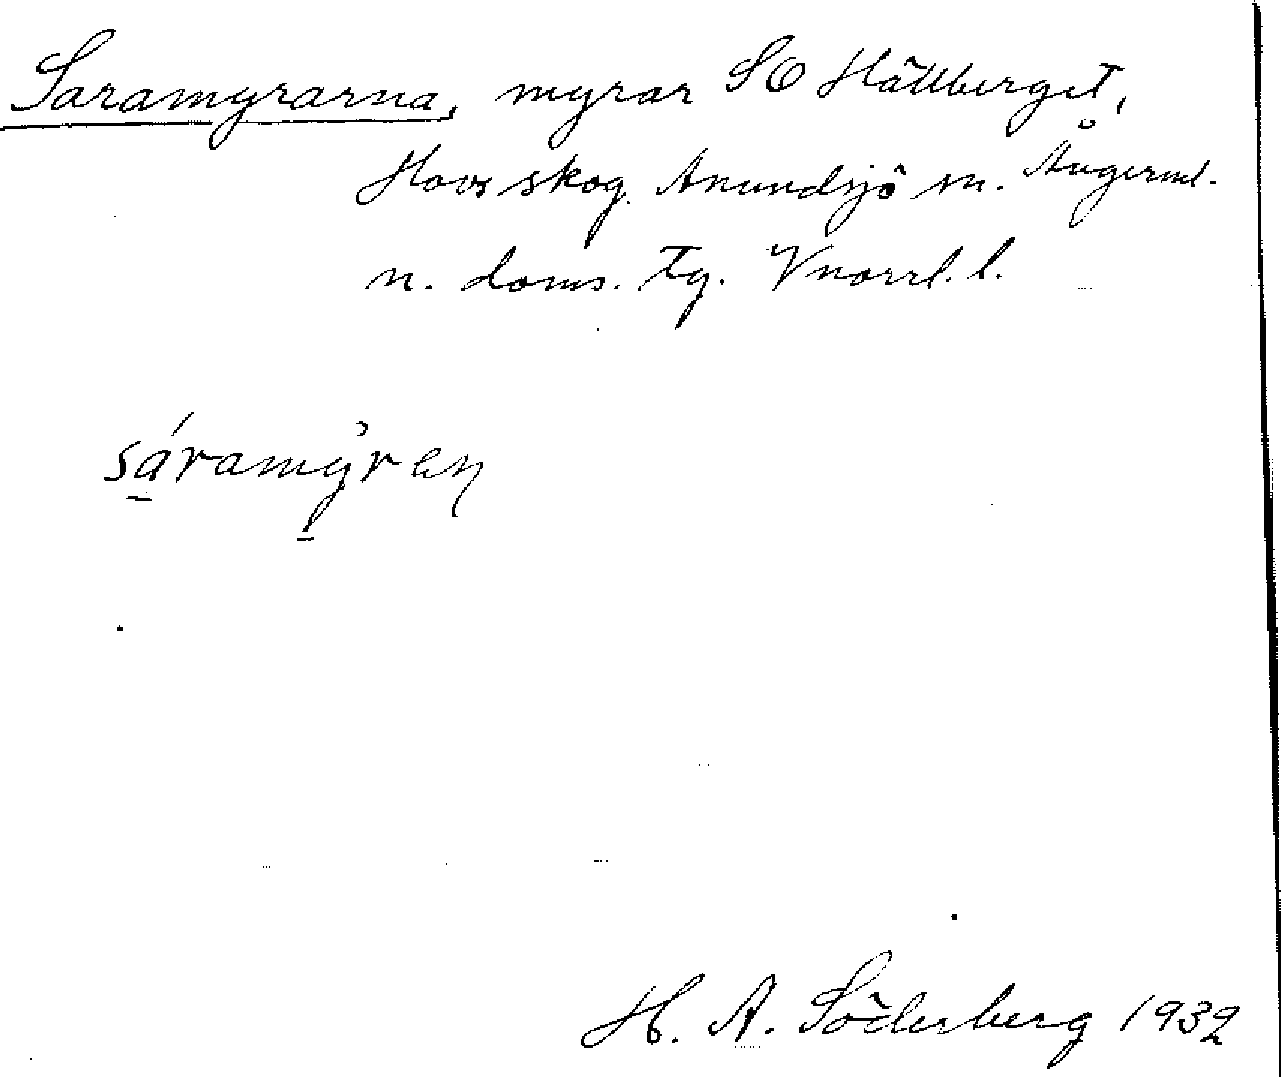 Saramyrarna, myrar SO Hällberget,
Hovs skog. Anundsjö sn. Ångerml.
n. doms. tg. Vnorrl. l.
sáramỳren
H. A. Söderberg 1932